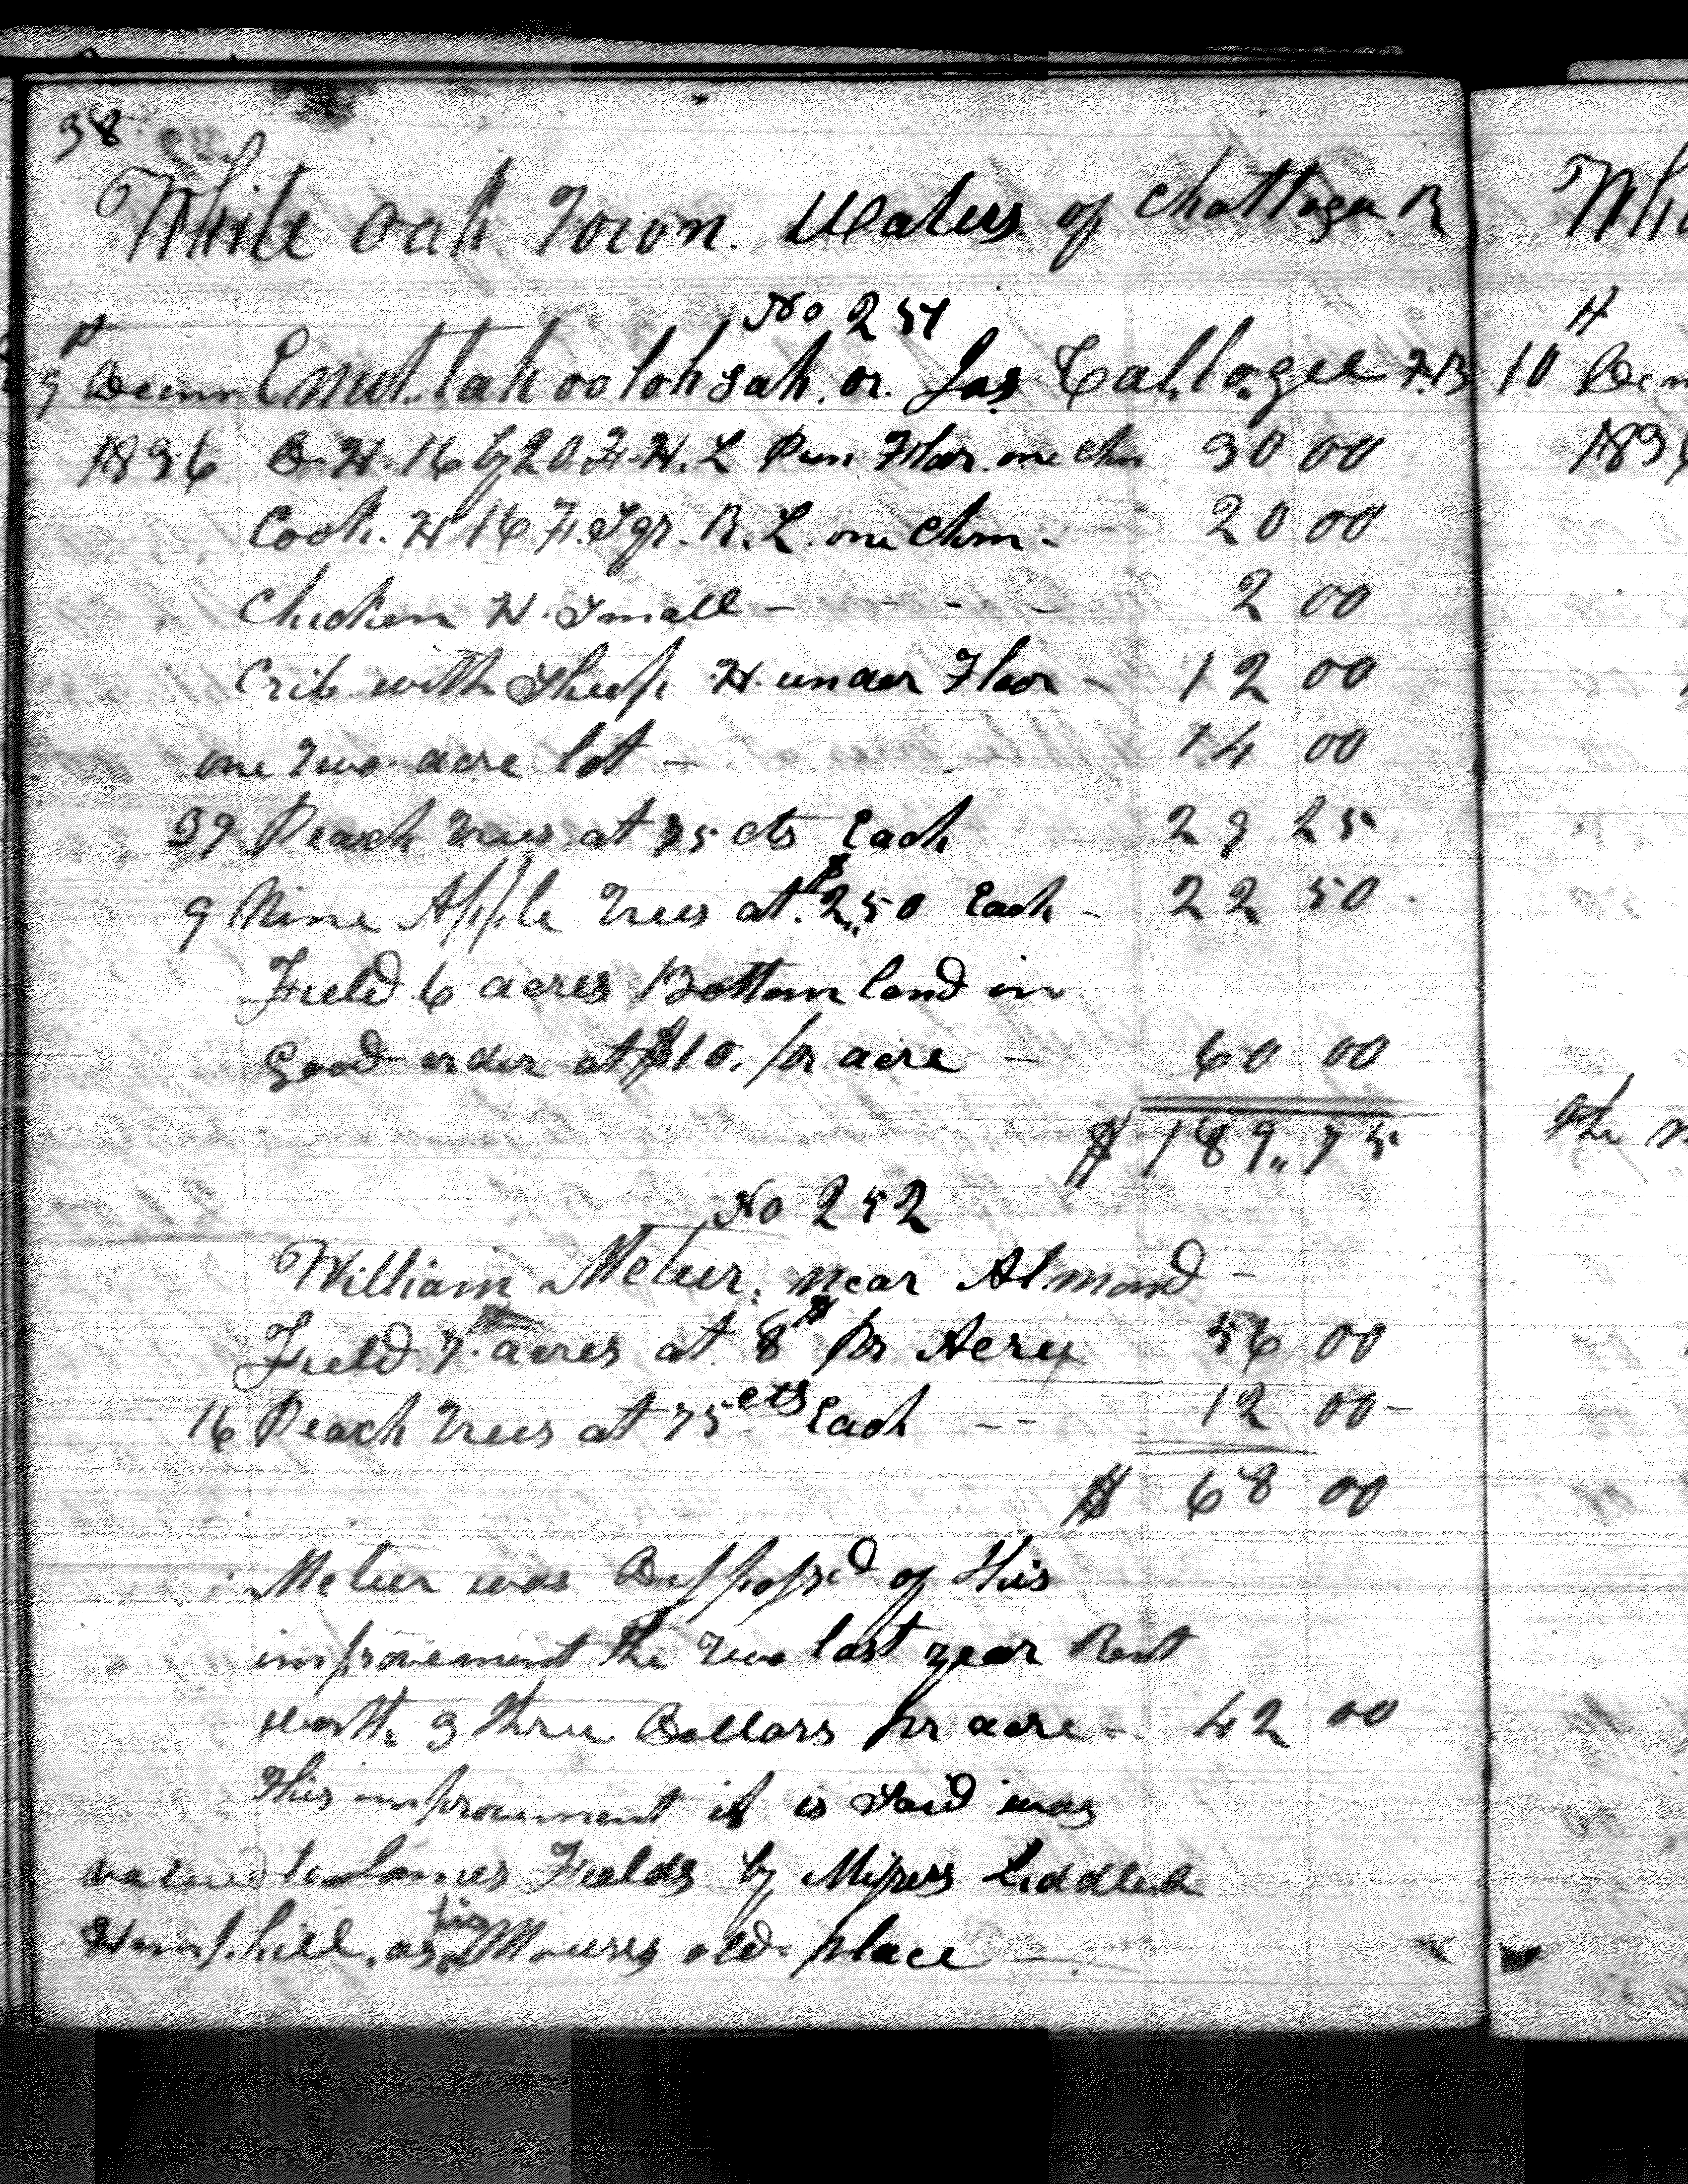 38
White Oak Town. Waters of Chattooga R
No 251
9 Decmr Enut.tah oo loh sah. or. Jas Callagee F.B
1836 D.H. 16 by 20 F.H.L Pun Floor. one Chm 30 00
Cook. H 16 F. Sqr. R. L. one Chm - 20 00
Chicken H. Small - - - - 2 00
Crib with Sheep H. under Floor - 12 00
one Two acre lot - 14 00
39 Peach Trees at 75 cts Each 29 25
9 Nine Apple Trees at $2,,50 Each - 22 50
Field 6 acres Bottom land in
Good order at $10. pr acre - 60 00
$ 189,,75
No 252
William Meteer. near Almond -
Field. 7. acres at 8$ pr Acre 56 00
16 Peach Trees at 75 cts Each - - 12 00
$ 68 00
Meteer was Dispossd of this
improvement the Two last year Rent
worth 3 three Dollars pr acre - 42 00
This improvement it is Said was
valued to James Fields by Messrs Liddle &
Hemphill, as his Mouses old place -
10
1836
The